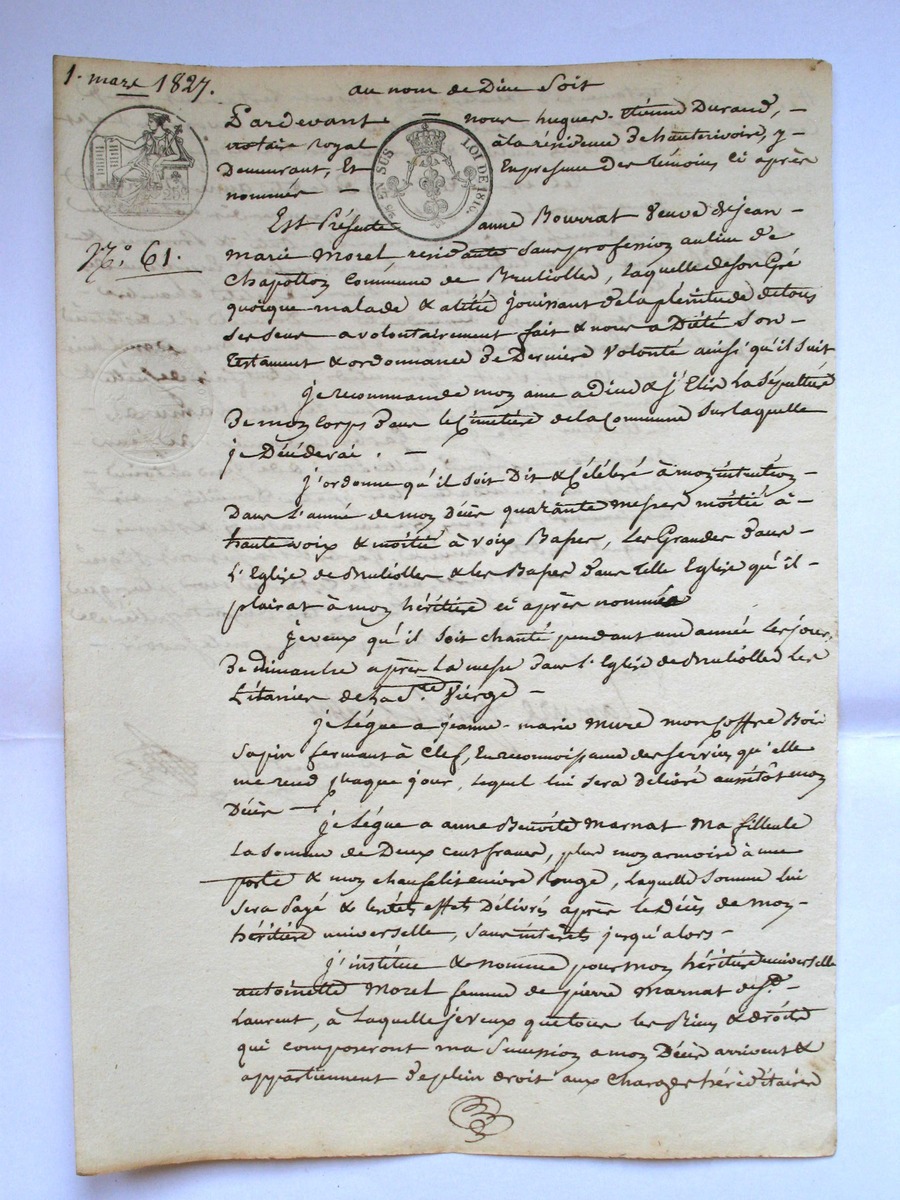 1. mars 1827.
au nom de Dieu Soit
Pardevant nous hugues Etienne Durand,
notaire royal à la résidence de hauterivoire, y
Demeurant, Et En presence des témoins ci après
nommés
LOI DE 1816.
EN SUS
N.o 61.
Est Présente anne Bourrat veuve de jean
marie Morel, residante sans profession au lieu de
Chapottoz Commune de Brulioller, Laquelle de son Gré
quoique malade & alitée jouissant de la plenitude de tous
ses sens a volontairement fait & nous a Dicté Son
testament & ordonnance de Derniere Volonté ainsi qu'il suit
je recommande moz ame a dieu & j'Elis La Sépulture
de moz Corps dans le Cimetière de la Commune Sur laquelle
je Décéderai.
j'ordonne qu'il soit Dit & Célébré à moz intentioz
Dans L'année de moz Décès quarante messes moitié à
haute voix & moitié à voix Basses, Les Grandes dans
L'Eglise de Brulioller & les Basses dans telle Eglise qu'il
plairat à moz héritière ci après nommée
je veux qu'il soit chanté pendant une année Les jours
de dimanche après La messe dans L'Eglise de Brulioller Les
Litanies de La Ste Vièrge
je Légue a jeanne-marie mure mon Coffre Bois
sapin fermant à Clef, En reconnoissance des services qu'elle
me rend chaque jour, Lequel lui sera Délivré aussitôt moz
Décès
je Légue a anne Benoîte Marnat Ma filleule
La Somme de Deux cent francs, plus moz armoire à une
porte & moz Rouge, Laquelle Somme lui
Sera Payé & lesdts effets Délivrés après le Décès de moz
héritière universelle, Sans intérêts jusqu'alors
j'institue & nomme pour moz héritière universelle
antoinette Morel femme de pierre Marnat de St
Laurent, à Laquelle je veux que tous les Biens & droits
qui composeront ma Successioz a moz Décès arrivent &
appartiennent de plein droit aux Charges héréditaires